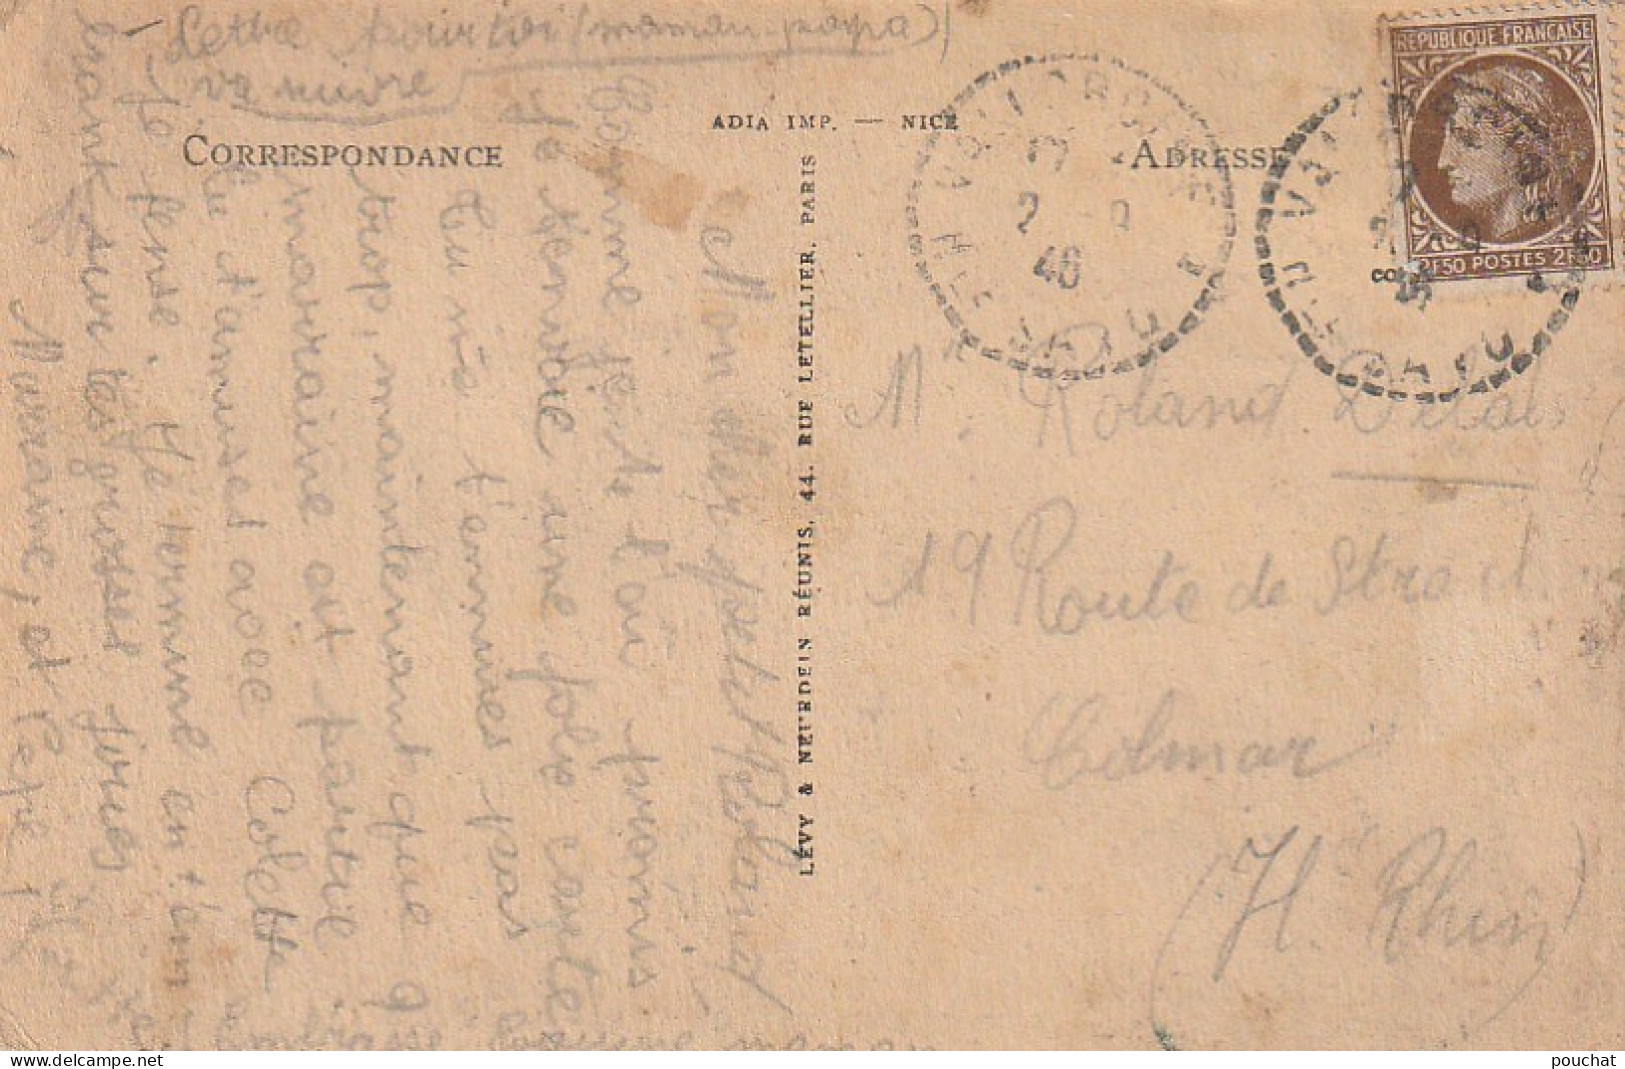 Lettre pour toi (maman, papa)
va suivre
ADIA IMP. — NICE
CORRESPONDANCE
ADRESSE
LÉVY & NEURDEIN RÉUNIS, 44, RUE LETELLIER, PARIS
REPUBLIQUE FRANÇAISE
2F50 POSTES 2F50
2 -9
46
Mon cher petit Roland
Comme je te l'ai promis
je t'envoie une jolie carte
Tu ne t'ennuies pas
trop, maintenant que
marraine est partie
tu t'amuses avec Colette
je pense. Je termine en t'em
brassant sur tes grosses joues
Marraine, et Pépé
Mr Roland Delab
19 Route de Stras
Colmar
(H. Rhin)
pouchat